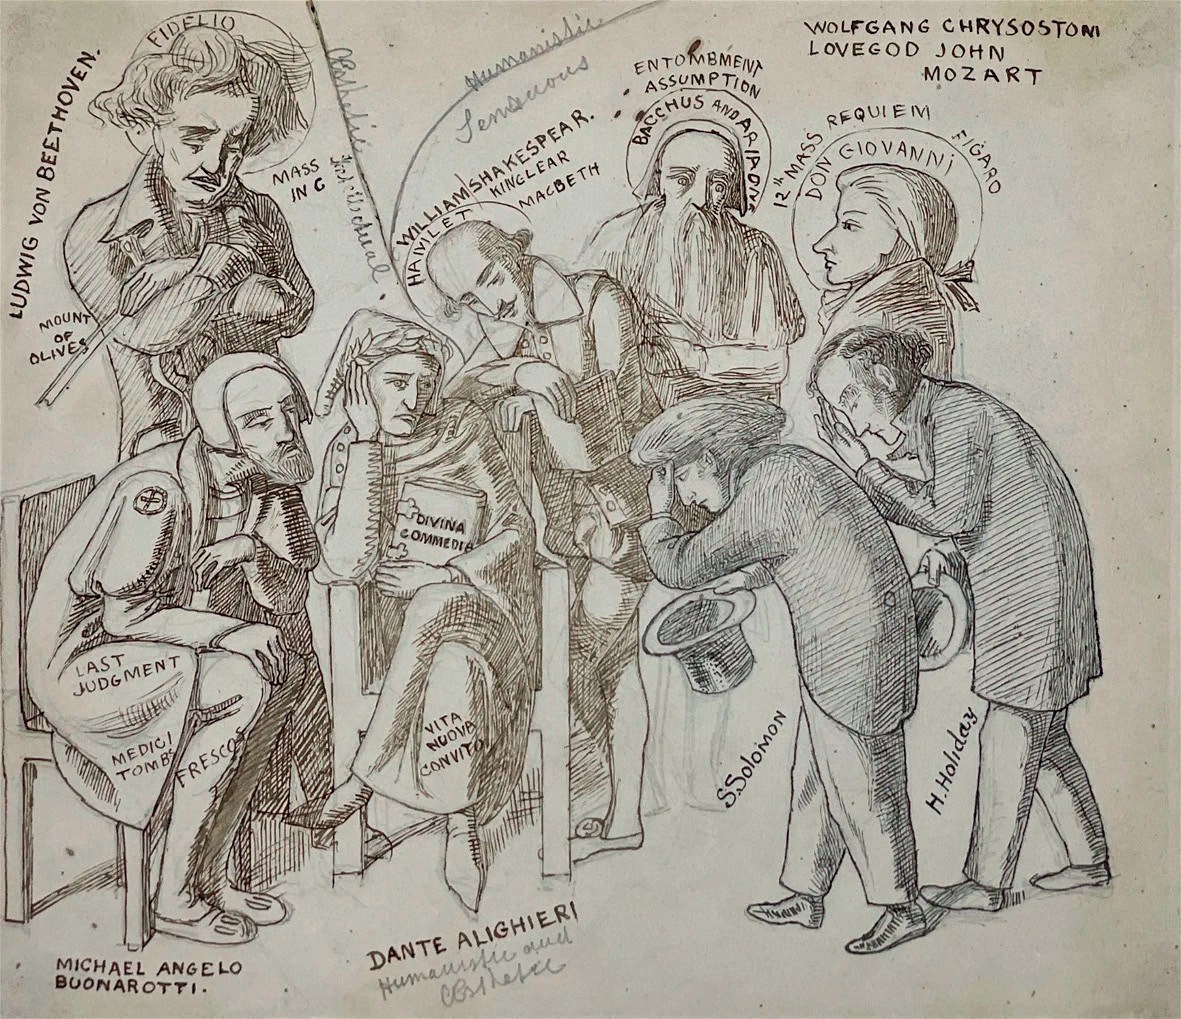 FIDELIO
LUDWIG VON BEETHOVEN.
MASS
IN C
MOUNT
OF
OLIVES
Esthetic
Humanistic
Sensuous
WILLIAM SHAKESPEAR.
HAMLET
KING LEAR
MACBETH
ENTOMBMENT
ASSUMPTION
BACCHUS AND ARIADNE
WOLFGANG CHRYSOSTOM
LOVEGOD JOHN
MOZART
12th MASS REQUIEM FIGARO
DON GIOVANNI
DIVINA
COMMEDIA
LAST
JUDGMENT
MEDICI
TOMBS
FRESCOS
VITA
NUOVA
CONVITO
S. Solomon
H. Holiday
MICHAEL ANGELO
BUONAROTTI.
DANTE ALIGHIERI
Humanistic and
Esthetic